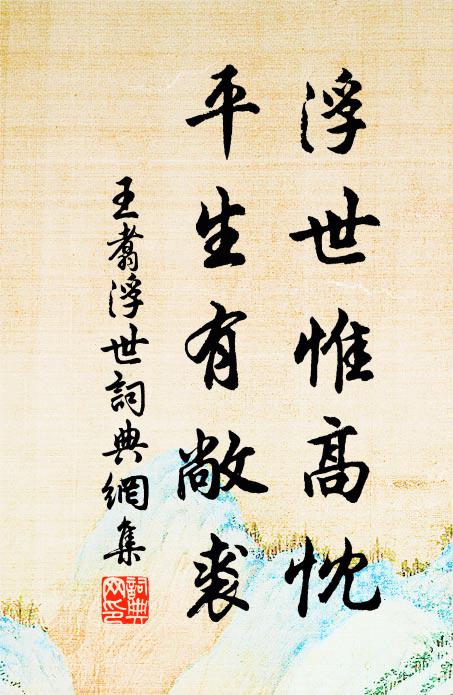 浮世惟高忱
平生有敞裘
王翥浮世詞典網集
詞典網印